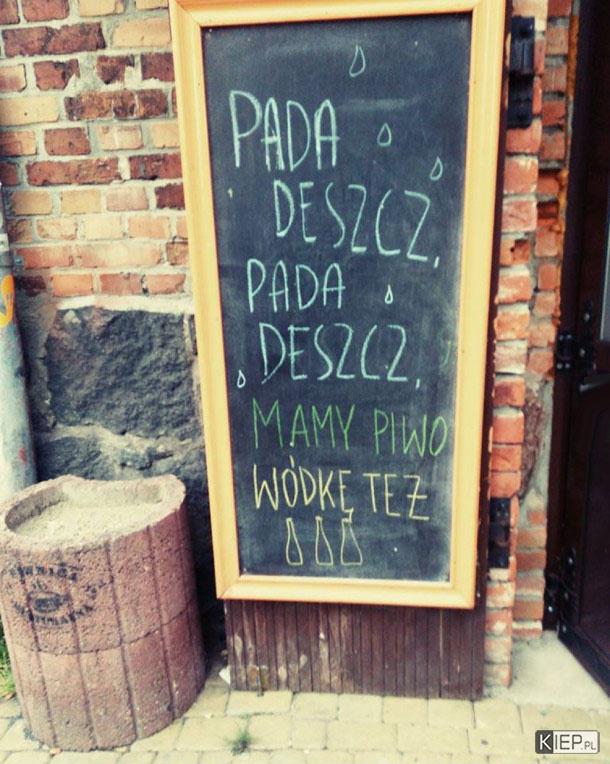 PADA
DESZCZ,
PADA
DESZCZ,
MAMY PIWO
WÓDKĘ TEŻ
KIEP.PL